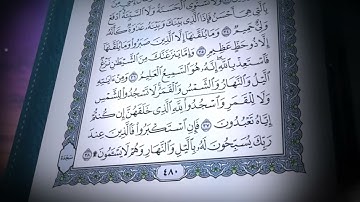 بِٱلَّتِى هِىَ أَحْسَنُ فَإِذَا ٱلَّذِى بَيْنَكَ وَبَيْنَهُۥ عَدَٰوَةٌ كَأَنَّهُۥ
وَلِىٌّ حَمِيمٌ ٣٤ وَمَا يُلَقَّىٰهَآ إِلَّا ٱلَّذِينَ صَبَرُوا۟ وَمَا يُلَقَّىٰهَآ
إِلَّا ذُو حَظٍّ عَظِيمٍ ٣٥ وَإِمَّا يَنزَغَنَّكَ مِنَ ٱلشَّيْطَٰنِ نَزْغٌ
فَٱسْتَعِذْ بِٱللَّهِ إِنَّهُۥ هُوَ ٱلسَّمِيعُ ٱلْعَلِيمُ ٣٦ وَمِنْ ءَايَٰتِهِ
ٱلَّيْلُ وَٱلنَّهَارُ وَٱلشَّمْسُ وَٱلْقَمَرُ لَا تَسْجُدُوا۟ لِلشَّمْسِ
وَلَا لِلْقَمَرِ وَٱسْجُدُوا۟ لِلَّهِ ٱلَّذِى خَلَقَهُنَّ إِن كُنتُمْ
إِيَّاهُ تَعْبُدُونَ ٣٧ فَإِنِ ٱسْتَكْبَرُوا۟ فَٱلَّذِينَ عِندَ
رَبِّكَ يُسَبِّحُونَ لَهُۥ بِٱلَّيْلِ وَٱلنَّهَارِ وَهُمْ لَا يَسْـَٔمُونَ ۩ ٣٨
٤٨٠